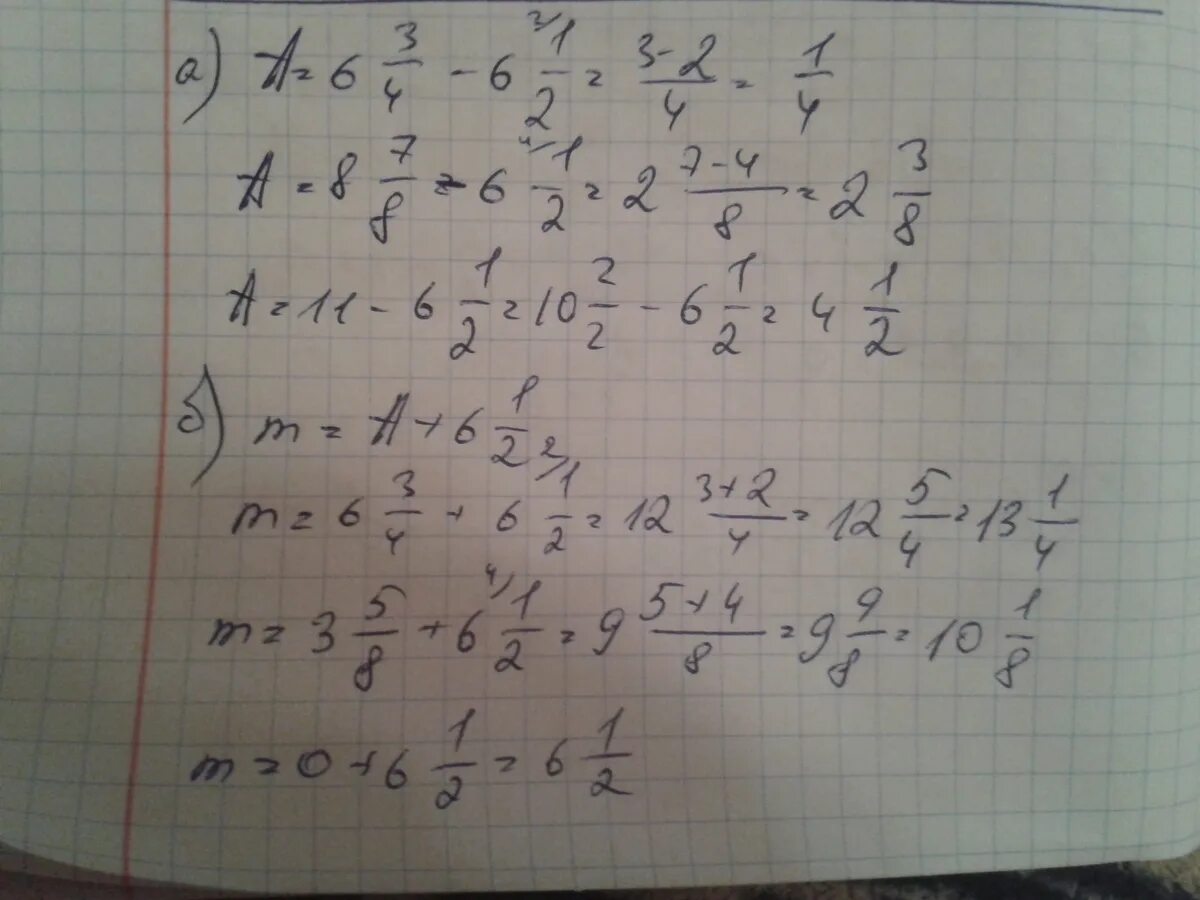 а) A = 6 3/4 - 6 2/1/2 = 3-2/4 = 1/4
A = 8 7/8 - 6 4/1/2 = 2 7-4/8 = 2 3/8
A = 11 - 6 1/2 = 10 2/2 - 6 1/2 = 4 1/2
б) m = A + 6 1/2
m = 6 3/4 + 6 2/1/2 = 12 3+2/4 = 12 5/4 = 13 1/4
m = 3 5/8 + 6 4/1/2 = 9 5+4/8 = 9 9/8 = 10 1/8
m = 0 + 6 1/2 = 6 1/2